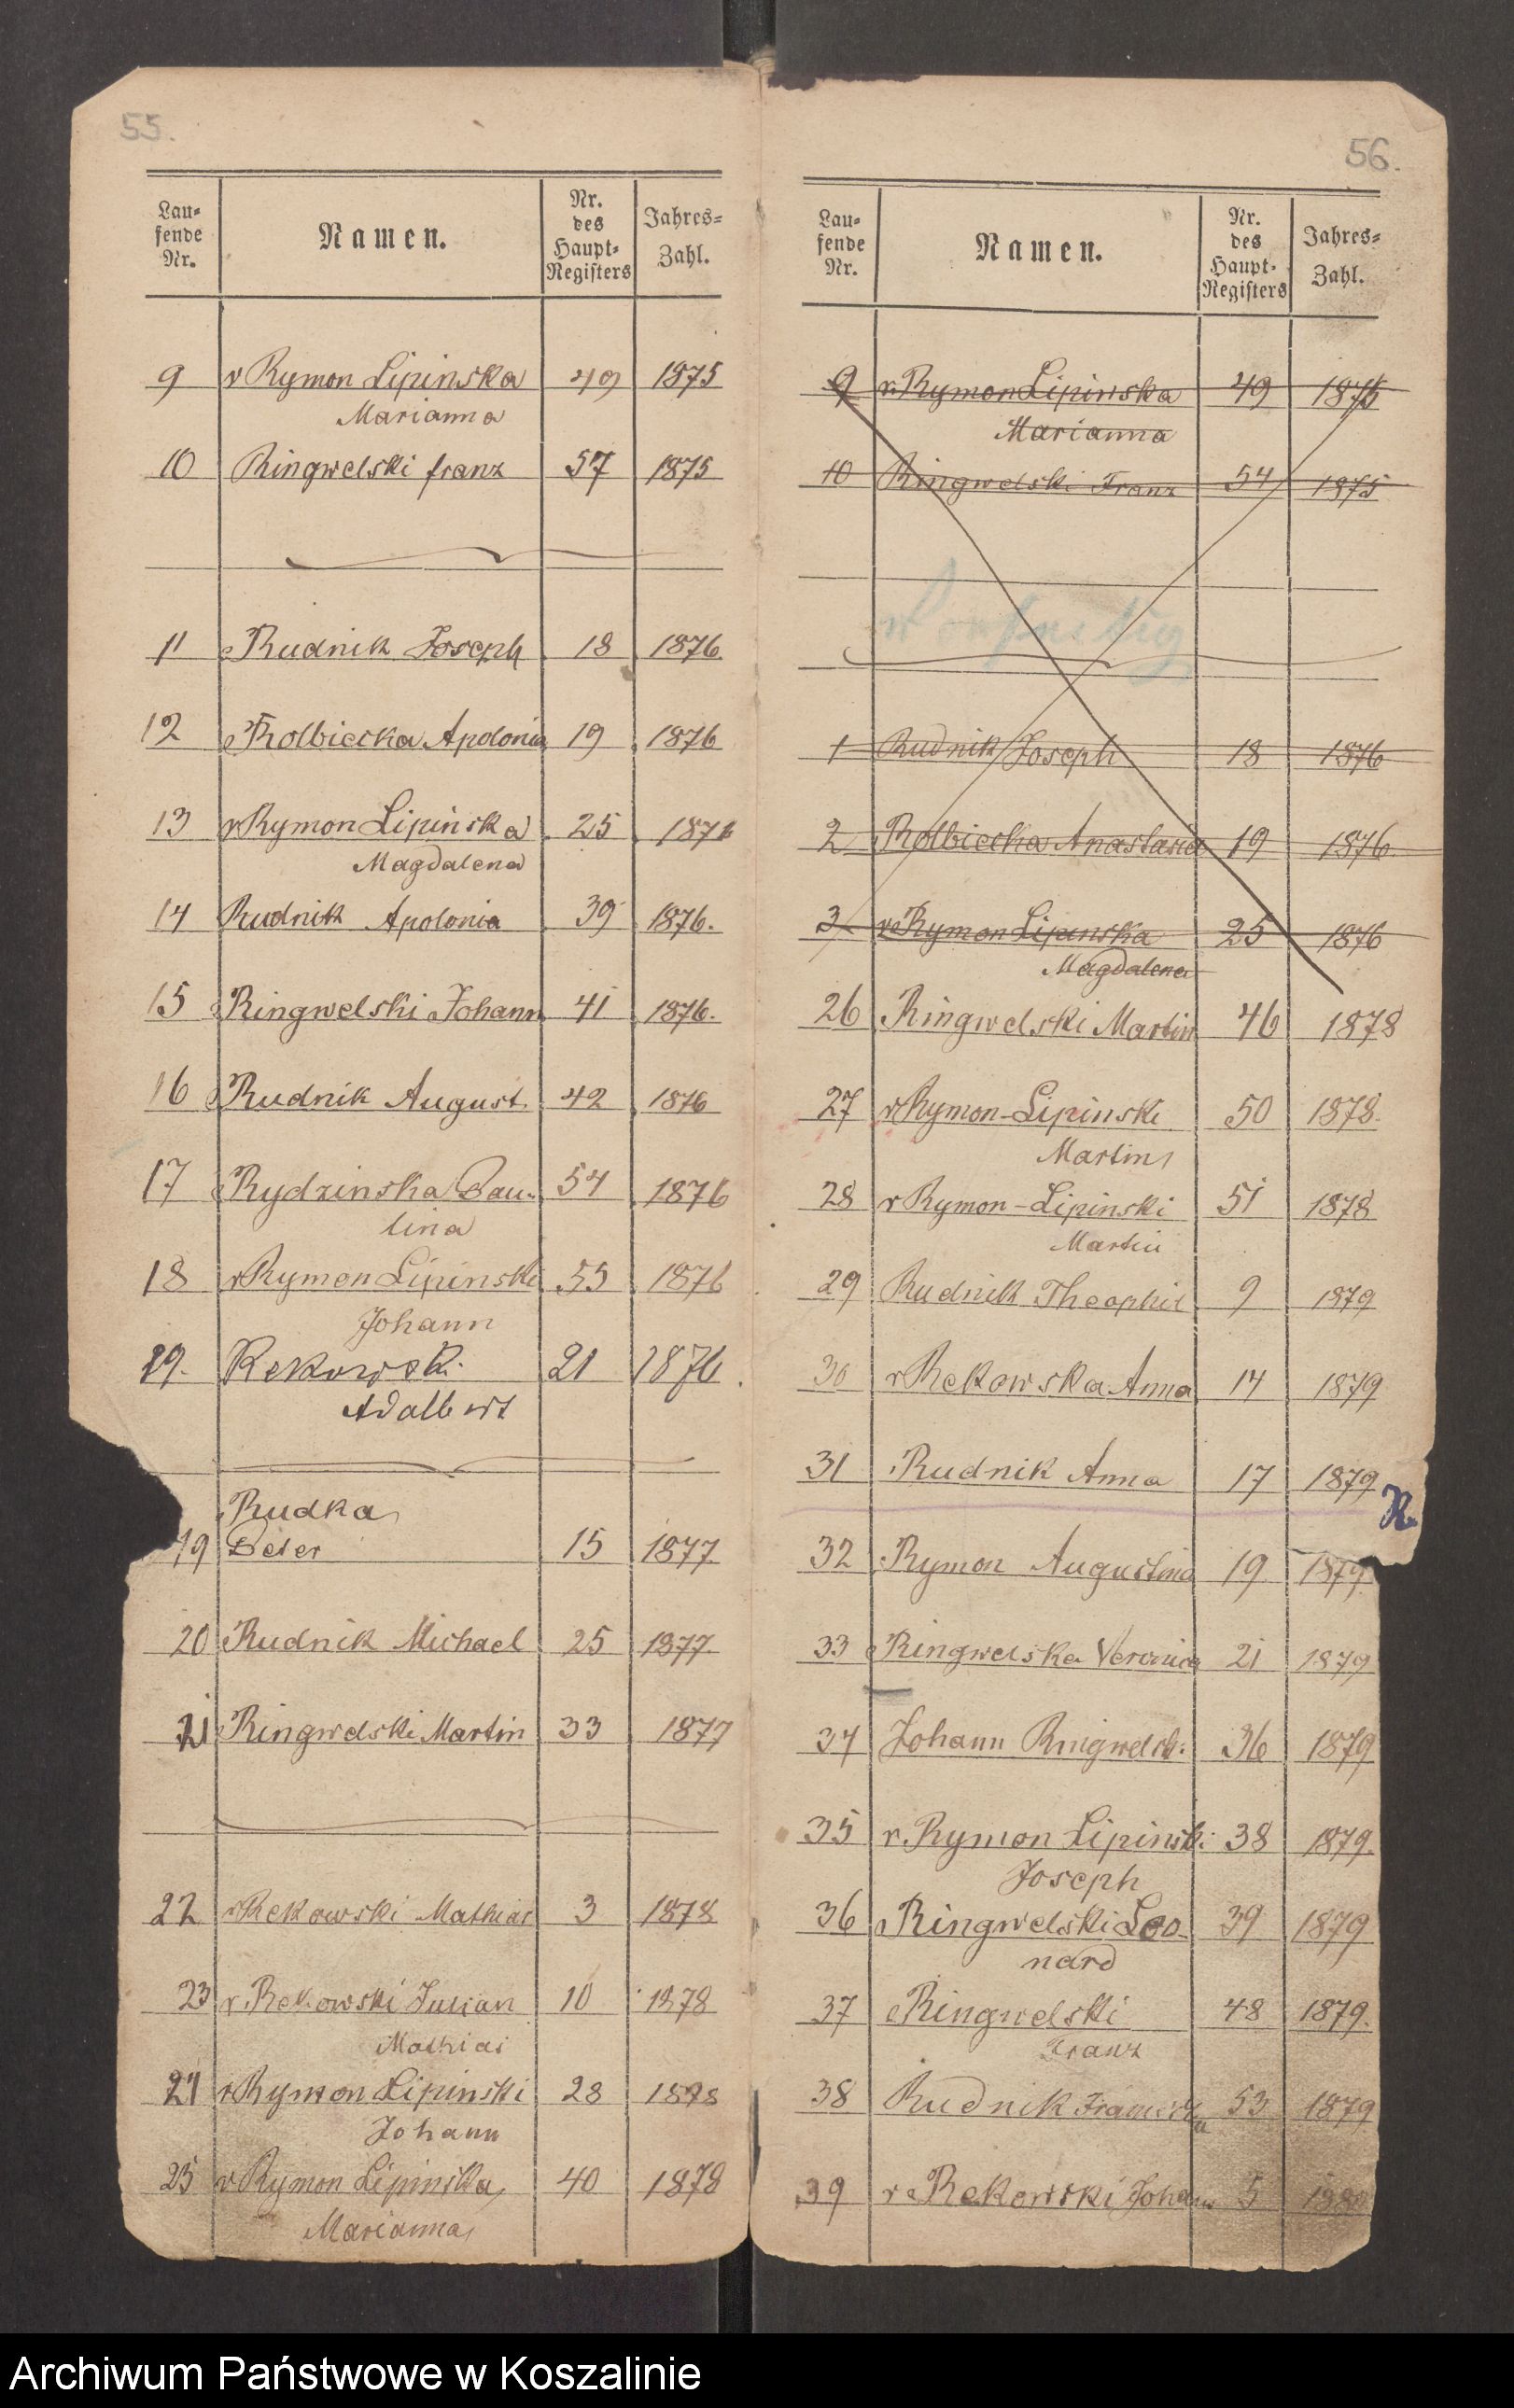 55.
Lau=
fende
Nr.
Namen.
Nr.
des
Haupt=
Registers
Jahres=
Zahl.
9 v Rymon Lipinska 49 1875
Marianna
10 Ringwelski franz 57 1875
11 Rudnik Joseph 18 1876
12 Rolbiecka Apolonia 19 1876
13 v Rymon Lipinska 25 1876
Magdalena
14 Rudnik Apolonia 39 1876.
15 Ringwelski Johann 41 1876.
16 Rudnik August. 42 1876
17 Rydzinska Pau-
lina 54 1876
18 v Rymon Lipinski 55 1876
Johann
19. Rekowski 21 1876.
Adalbert
Rudka
19 Peter 15 1877
20 Rudnik Michael 25 1877.
21 Ringwelski Martin 33 1877
22 v Rekowski Mathias 3 1878
23 v. Rekowski Julian 10 1878
Mathias
24 v Rymon Lipinski 28 1878
Johann
25 v Rymon Lipinska 40 1878
Marianna
56.
Lau=
fende
Nr.
Namen.
Nr.
des
Haupt=
Registers
Jahres=
Zahl.
9 v. Rymon Lipinska 49 1875
Marianna
10 Ringwelski Franz 54 1875
1 Rudnik Joseph 18 1876
2 Rolbiecka Anastasia 19 1876
3 v Rymon Lipinska 25 1876
Magdalena
26 Ringwelski Martin 46 1878
27 v Rymon-Lipinski 50 1878.
Martin
28 v Rymon-Lipinski 51 1878
Martin
29 Rudnik Theophil 9 1879
30 v Rekowska Anna 14 1879
31 Rudnik Anna 17 1879
R.
32 Rymon Augustina 19 1879
33 Ringwelska Veronica 21 1879
34 Johann Ringwelski 36 1879
35 v. Rymon Lipinski 38 1879.
Joseph
36 Ringwelski Leo-
nard 39 1879
37 Ringwelski 48 1879.
Franz
38 Rudnik 53 1879
39 v Rekowski Johann 5 1880
Archiwum Państwowe w Koszalinie